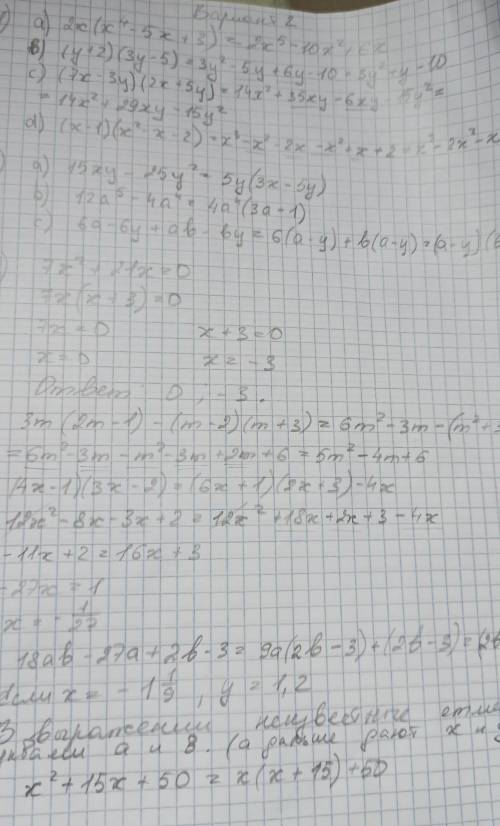 Вариант 2
a) 2x(x⁴-5x+3) = 2x⁵-10x²+6x
b) (y+2)(3y-5) = 3y²-5y+6y-10 = 3y²+y-10
c) (7x-3y)(2x+5y) = 14x²+35xy-6xy-15y² =
= 14x²+29xy-15y²
d) (x-1)(x²-x-2) = x³-x²-2x-x²+x+2 = x³-2x²-x
a) 15xy-25y² = 5y(3x-5y)
b) 12a⁵-4a⁴ = 4a⁴(3a-1)
6a-6y+ab-by = 6(a-y)+b(a-y) = (a-y)(6
7x²+21x=0
7x(x+3)=0
7x=0 x+3=0
x=0 x=-3
Ответ: 0; -3.
3m(2m-1)-(m-2)(m+3) = 6m²-3m-(m²+3
= 6m²-3m-m²-3m+2m+6 = 5m²-4m+6
(4x-1)(3x-2) = (6x+1)(2x+3)-4x
12x²-8x-3x+2 = 12x²+18x+2x+3-4x
-11x+2 = 16x+3
-27x=1
x = -1/27
18ab-27a+2b-3 = 9a(2b-3)+(2b-3) = (2b
Если x = -1 1/9, y = 1,2
В выражении неизвестные
a и в. (а дальше дают x и
x²+15x+50 = x(x+15)+50